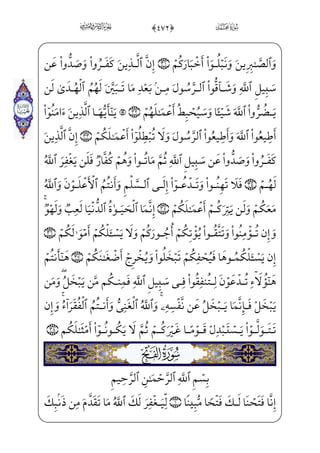 سُورَةُ مُحَمَّدٍ ﴿٤٧٢﴾ الجزء السادس والعشرون
وَٱلصَّٰبِرِينَ وَنَبْلُوَا۟ أَخْبَارَكُمْ ۝٣١ إِنَّ ٱلَّذِينَ كَفَرُوا۟ وَصَدُّوا۟ عَن
سَبِيلِ ٱللَّهِ وَشَآقُّوا۟ ٱلرَّسُولَ مِنۢ بَعْدِ مَا تَبَيَّنَ لَهُمُ ٱلْهُدَىٰ لَن
يَضُرُّوا۟ ٱللَّهَ شَيْـًٔا وَسَيُحْبِطُ أَعْمَٰلَهُمْ ۝٣٢ ۞ يَٰٓأَيُّهَا ٱلَّذِينَ ءَامَنُوٓا۟
أَطِيعُوا۟ ٱللَّهَ وَأَطِيعُوا۟ ٱلرَّسُولَ وَلَا تُبْطِلُوٓا۟ أَعْمَٰلَكُمْ ۝٣٣ إِنَّ ٱلَّذِينَ
كَفَرُوا۟ وَصَدُّوا۟ عَن سَبِيلِ ٱللَّهِ ثُمَّ مَاتُوا۟ وَهُمْ كُفَّارٌ فَلَن يَغْفِرَ ٱللَّهُ
لَهُمْ ۝٣٤ فَلَا تَهِنُوا۟ وَتَدْعُوٓا۟ إِلَى ٱلسَّلْمِ وَأَنتُمُ ٱلْأَعْلَوْنَ وَٱللَّهُ
مَعَكُمْ وَلَن يَتِرَكُمْ أَعْمَٰلَكُمْ ۝٣٥ إِنَّمَا ٱلْحَيَوٰةُ ٱلدُّنْيَا لَعِبٌ وَلَهْوٌ ۚ
وَإِن تُؤْمِنُوا۟ وَتَتَّقُوا۟ يُؤْتِكُمْ أُجُورَكُمْ وَلَا يَسْـَٔلْكُمْ أَمْوَٰلَكُمْ ۝٣٦
إِن يَسْـَٔلْكُمُوهَا فَيُحْفِكُمْ تَبْخَلُوا۟ وَيُخْرِجْ أَضْغَٰنَكُمْ ۝٣٧ هَٰٓأَنتُمْ
هَٰٓؤُلَآءِ تُدْعَوْنَ لِتُنفِقُوا۟ فِى سَبِيلِ ٱللَّهِ فَمِنكُم مَّن يَبْخَلُ ۖ وَمَن
يَبْخَلْ فَإِنَّمَا يَبْخَلُ عَن نَّفْسِهِۦ ۚ وَٱللَّهُ ٱلْغَنِىُّ وَأَنتُمُ ٱلْفُقَرَآءُ ۚ وَإِن
تَتَوَلَّوْا۟ يَسْتَبْدِلْ قَوْمًا غَيْرَكُمْ ثُمَّ لَا يَكُونُوٓا۟ أَمْثَٰلَكُم ۝٣٨
سُورَةُ الفَتْحِ
بِسْمِ ٱللَّهِ ٱلرَّحْمَٰنِ ٱلرَّحِيمِ
إِنَّا فَتَحْنَا لَكَ فَتْحًا مُّبِينًا ۝١ لِّيَغْفِرَ لَكَ ٱللَّهُ مَا تَقَدَّمَ مِن ذَنۢبِكَ